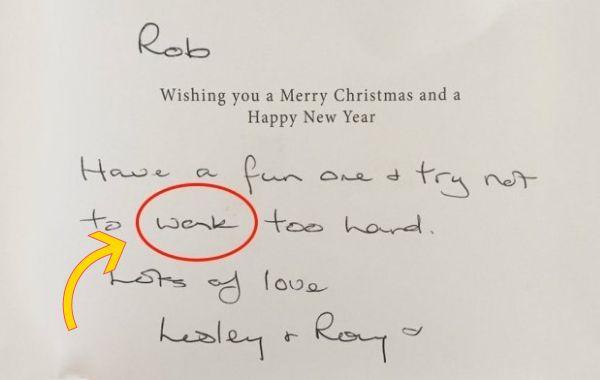 Rob
Wishing you a Merry Christmas and a
Happy New Year
Have a fun one + try not
to work too hard.
Lots of love
Lesley +